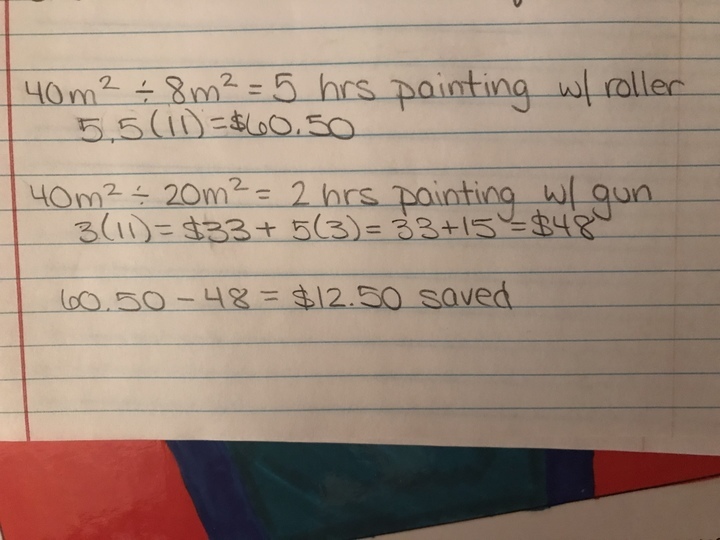 40m² ÷ 8m² = 5 hrs painting w/ roller
5.5(11) = $60.50
40m² ÷ 20m² = 2 hrs painting w/ gun
3(11) = $33 + 5(3) = 33+15 = $48
60.50 - 48 = $12.50 saved